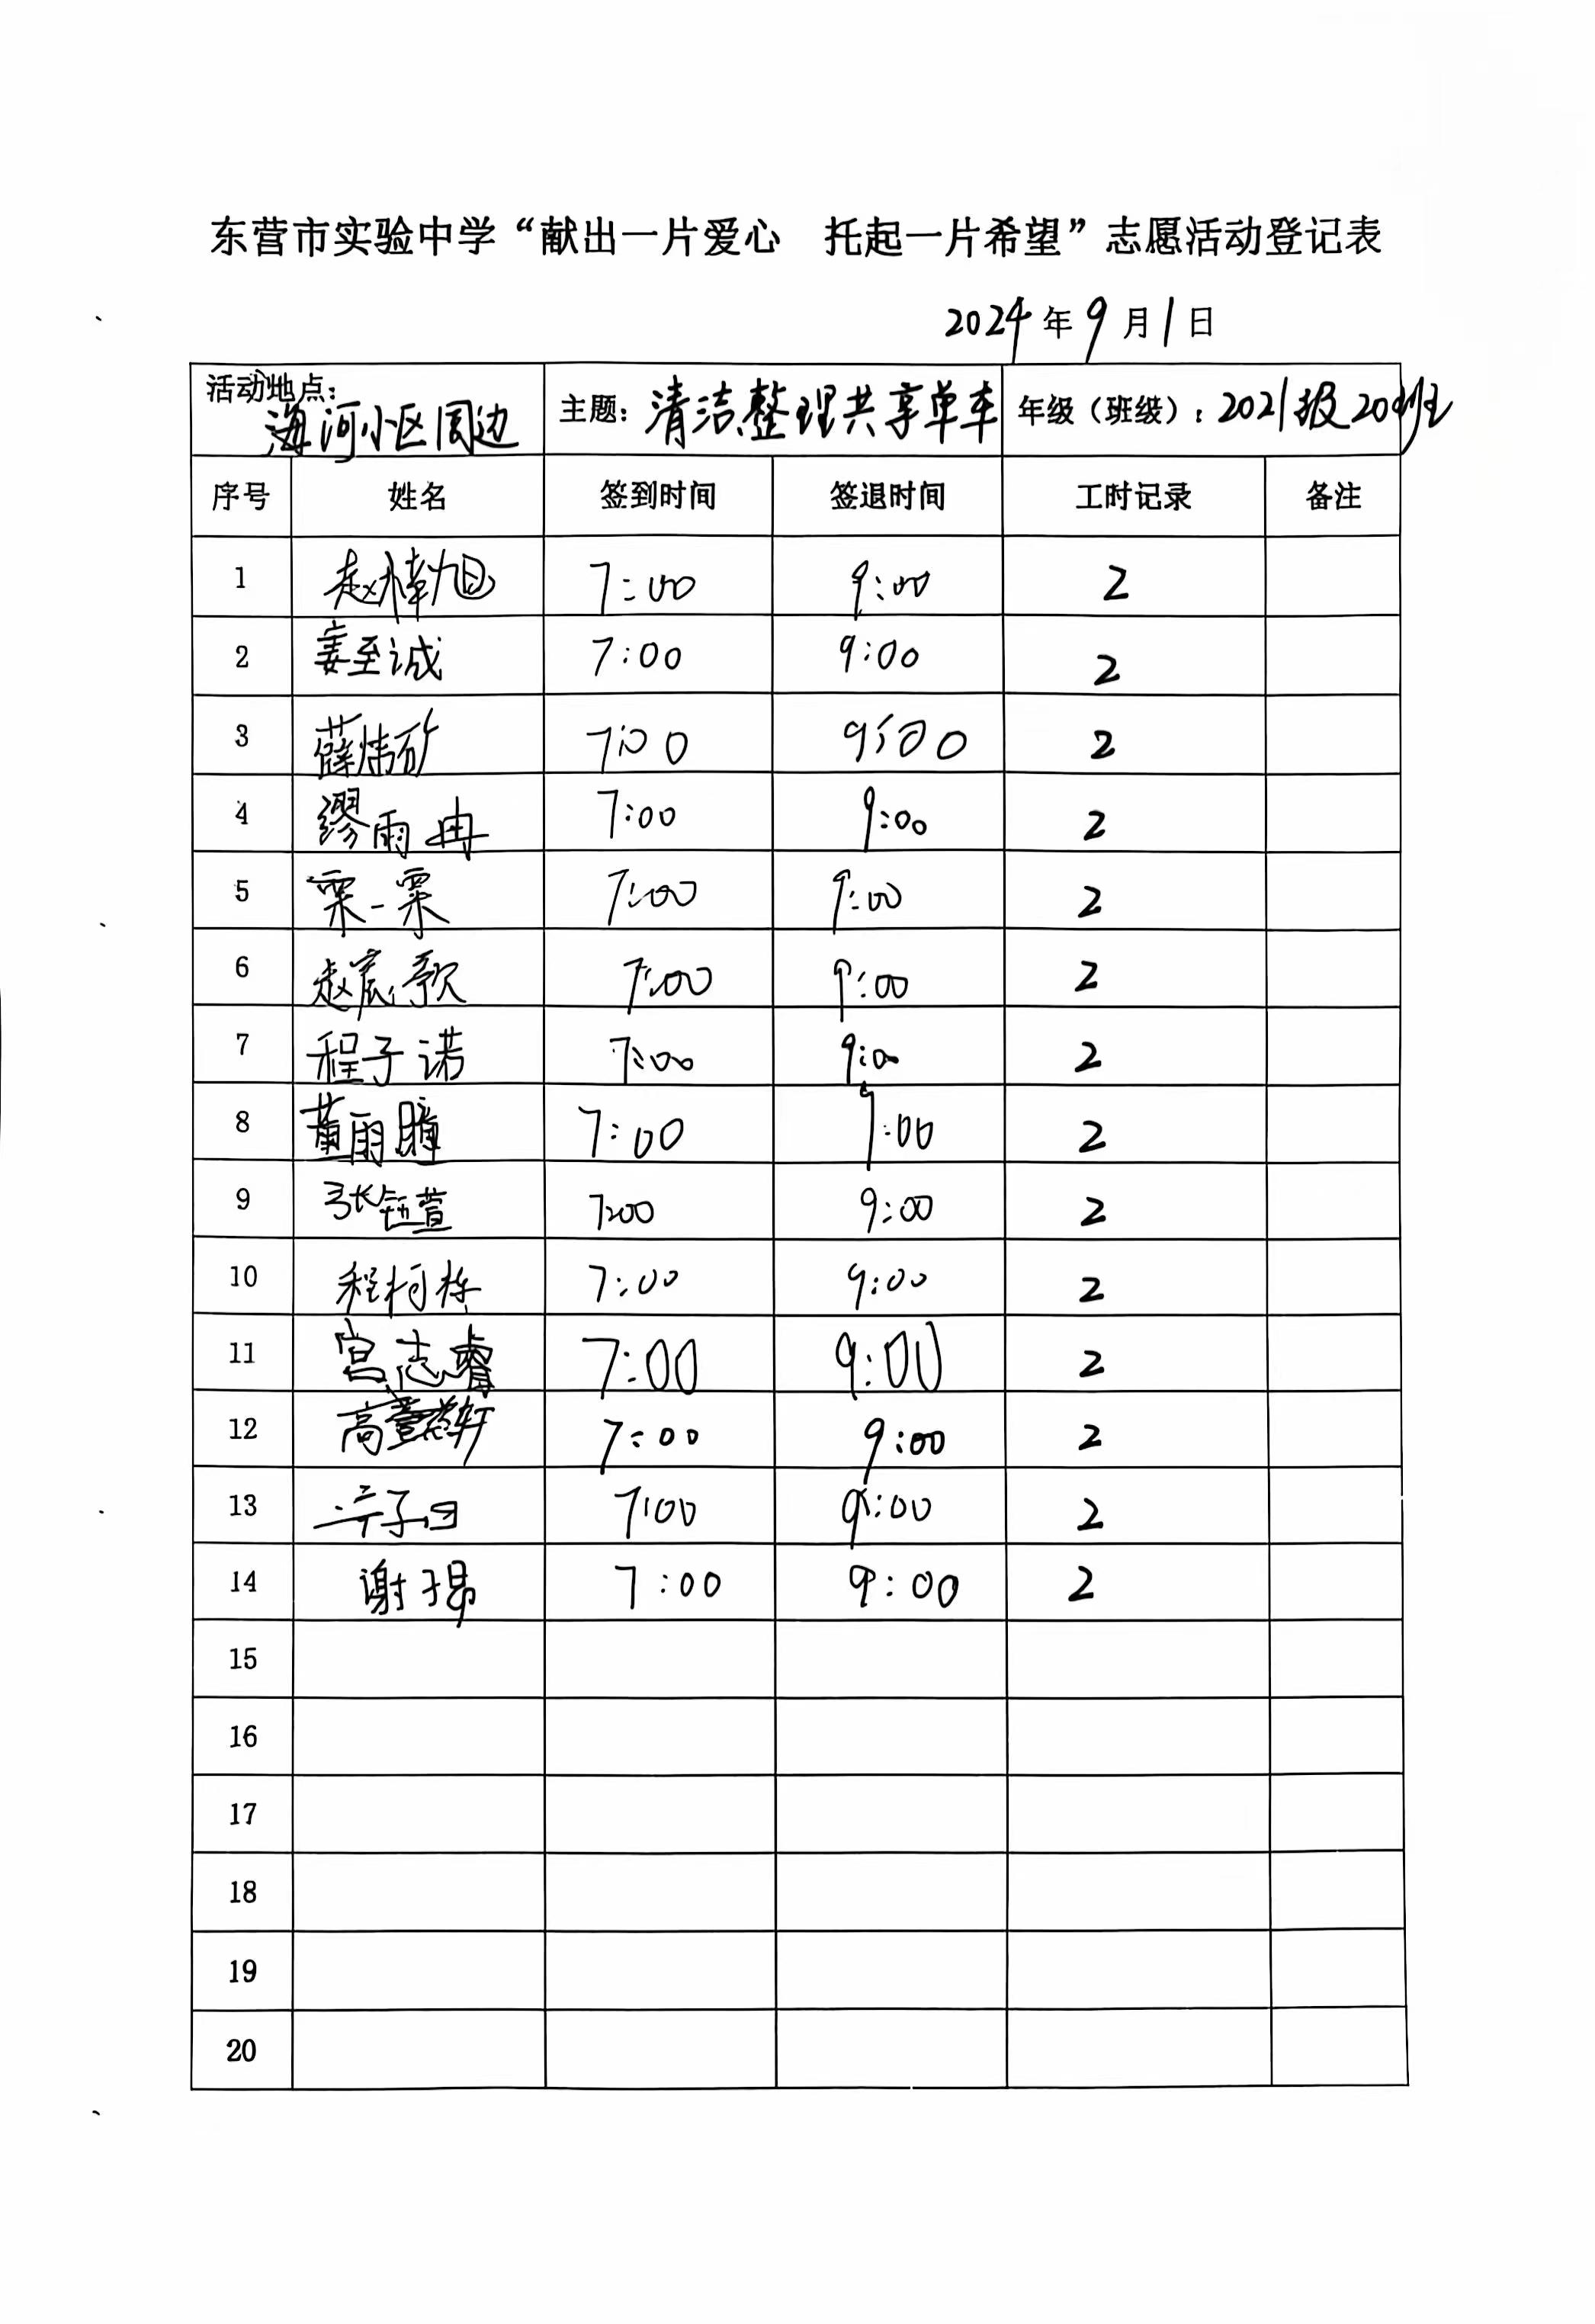 东营市实验中学“献出一片爱心 托起一片希望”志愿活动登记表
2024年9月1日
活动地点：海河小区周边 主题：清洁整理共享单车 年级（班级）：2021级20班
序号 姓名 签到时间 签退时间 工时记录 备注
1 赵 旭 7:00 9:00 2
2 姜至诚 7:00 9:00 2
3 薛炜 7:00 9:00 2
4 缪雨冉 7:00 9:00 2
5 栗一栗 7:00 9:00 2
6 赵宸歌 7:00 9:00 2
7 程子诺 7:00 9:00 2
8 黄雨瞳 7:00 9:00 2
9 张钰萱 7:00 9:00 2
10 程柯栋 7:00 9:00 2
11 宫志睿 7:00 9:00 2
12 高 轩 7:00 9:00 2
13 7:00 9:00 2
14 谢 7:00 9:00 2
15
16
17
18
19
20